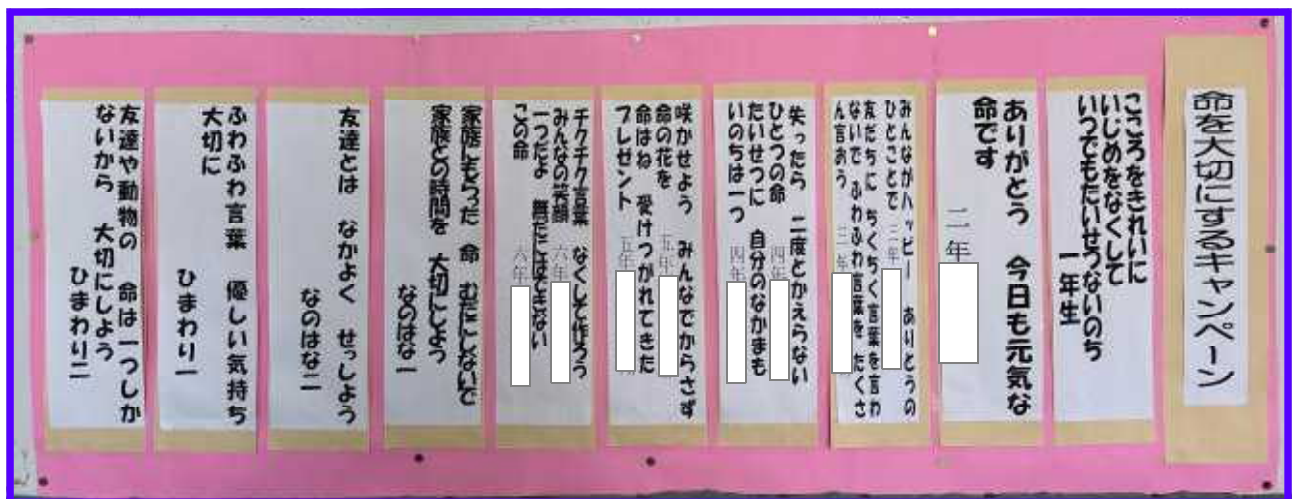 命を大切にするキャンペーン
こころをきれいに
いじめをなくして
いつでもたいせつないのち
一年生
ありがとう 今日も元気な
命です
二年
みんながハッピー ありとうの
ひとことで 三年
友だちに ちくちく言葉を言わ
ないで ふわふわ言葉を たくさ
ん言おう 三年
失ったら 二度とかえらない
ひとつの命 四年
たいせつに 自分のなかまも
いのちは一つ 四年
咲かせよう みんなでからさず
命の花を 五年
命はね 受けつがれてきた
プレゼント 五年
チクチク言葉 なくして作ろう
みんなの笑顔 六年
一つだよ 無だにはできない
この命 六年
家族にもらった 命 むだにしないで
家族との時間を 大切にしよう
なのはな一
友達とは なかよく せっしよう
なのはな二
ふわふわ言葉 優しい気持ち
大切に
ひまわり一
友達や動物の 命は一つしか
ないから 大切にしよう
ひまわり二